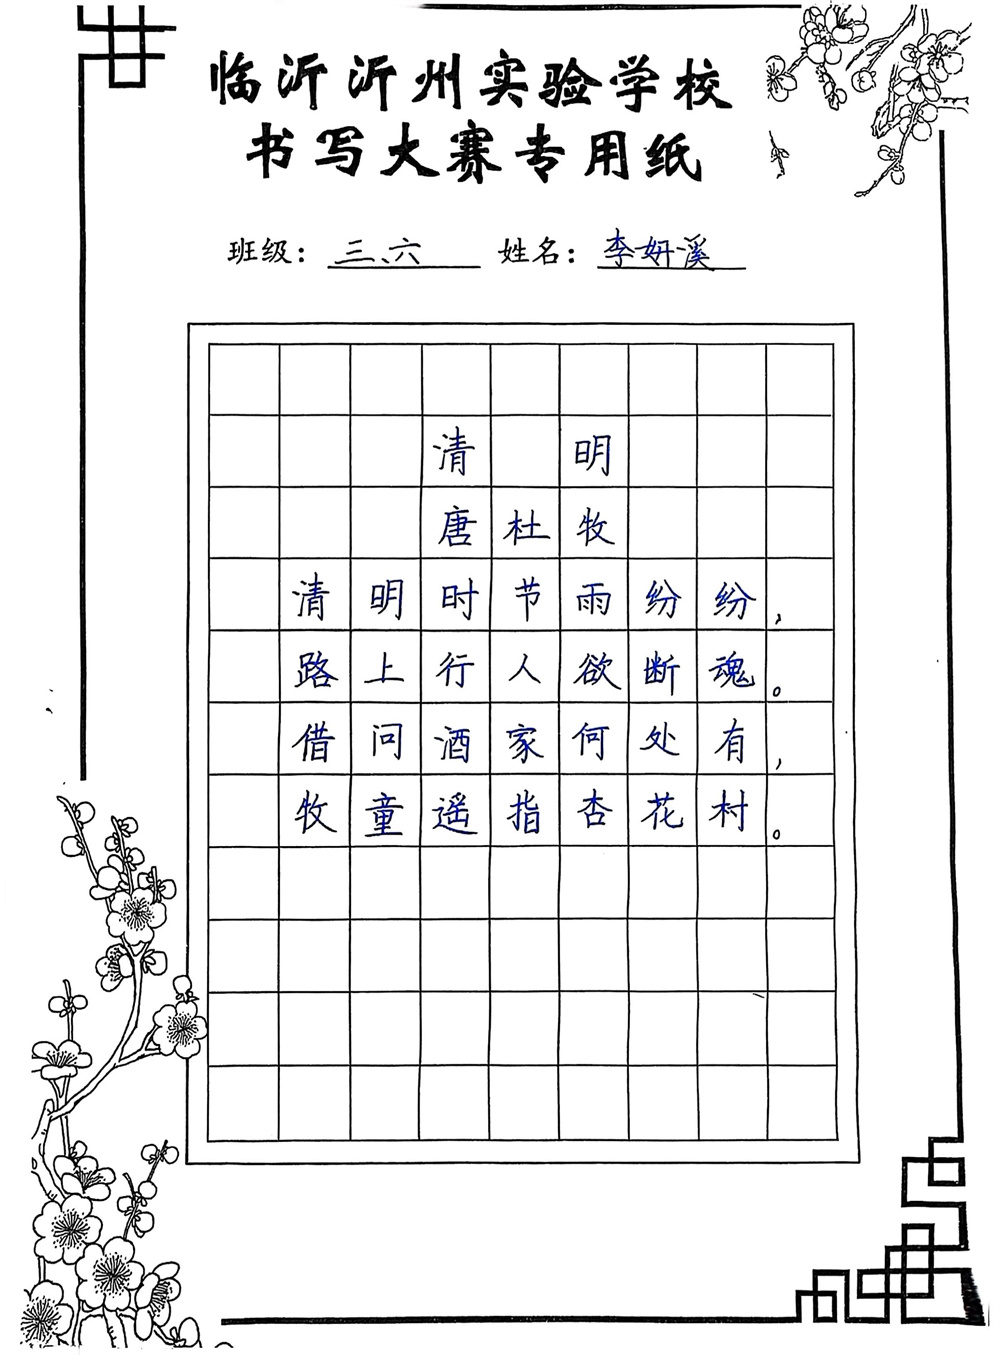 临沂沂州实验学校
书写大赛专用纸
班级：三、六 姓名：李妍溪
清明
唐杜牧
清明时节雨纷纷，
路上行人欲断魂。
借问酒家何处有，
牧童遥指杏花村。